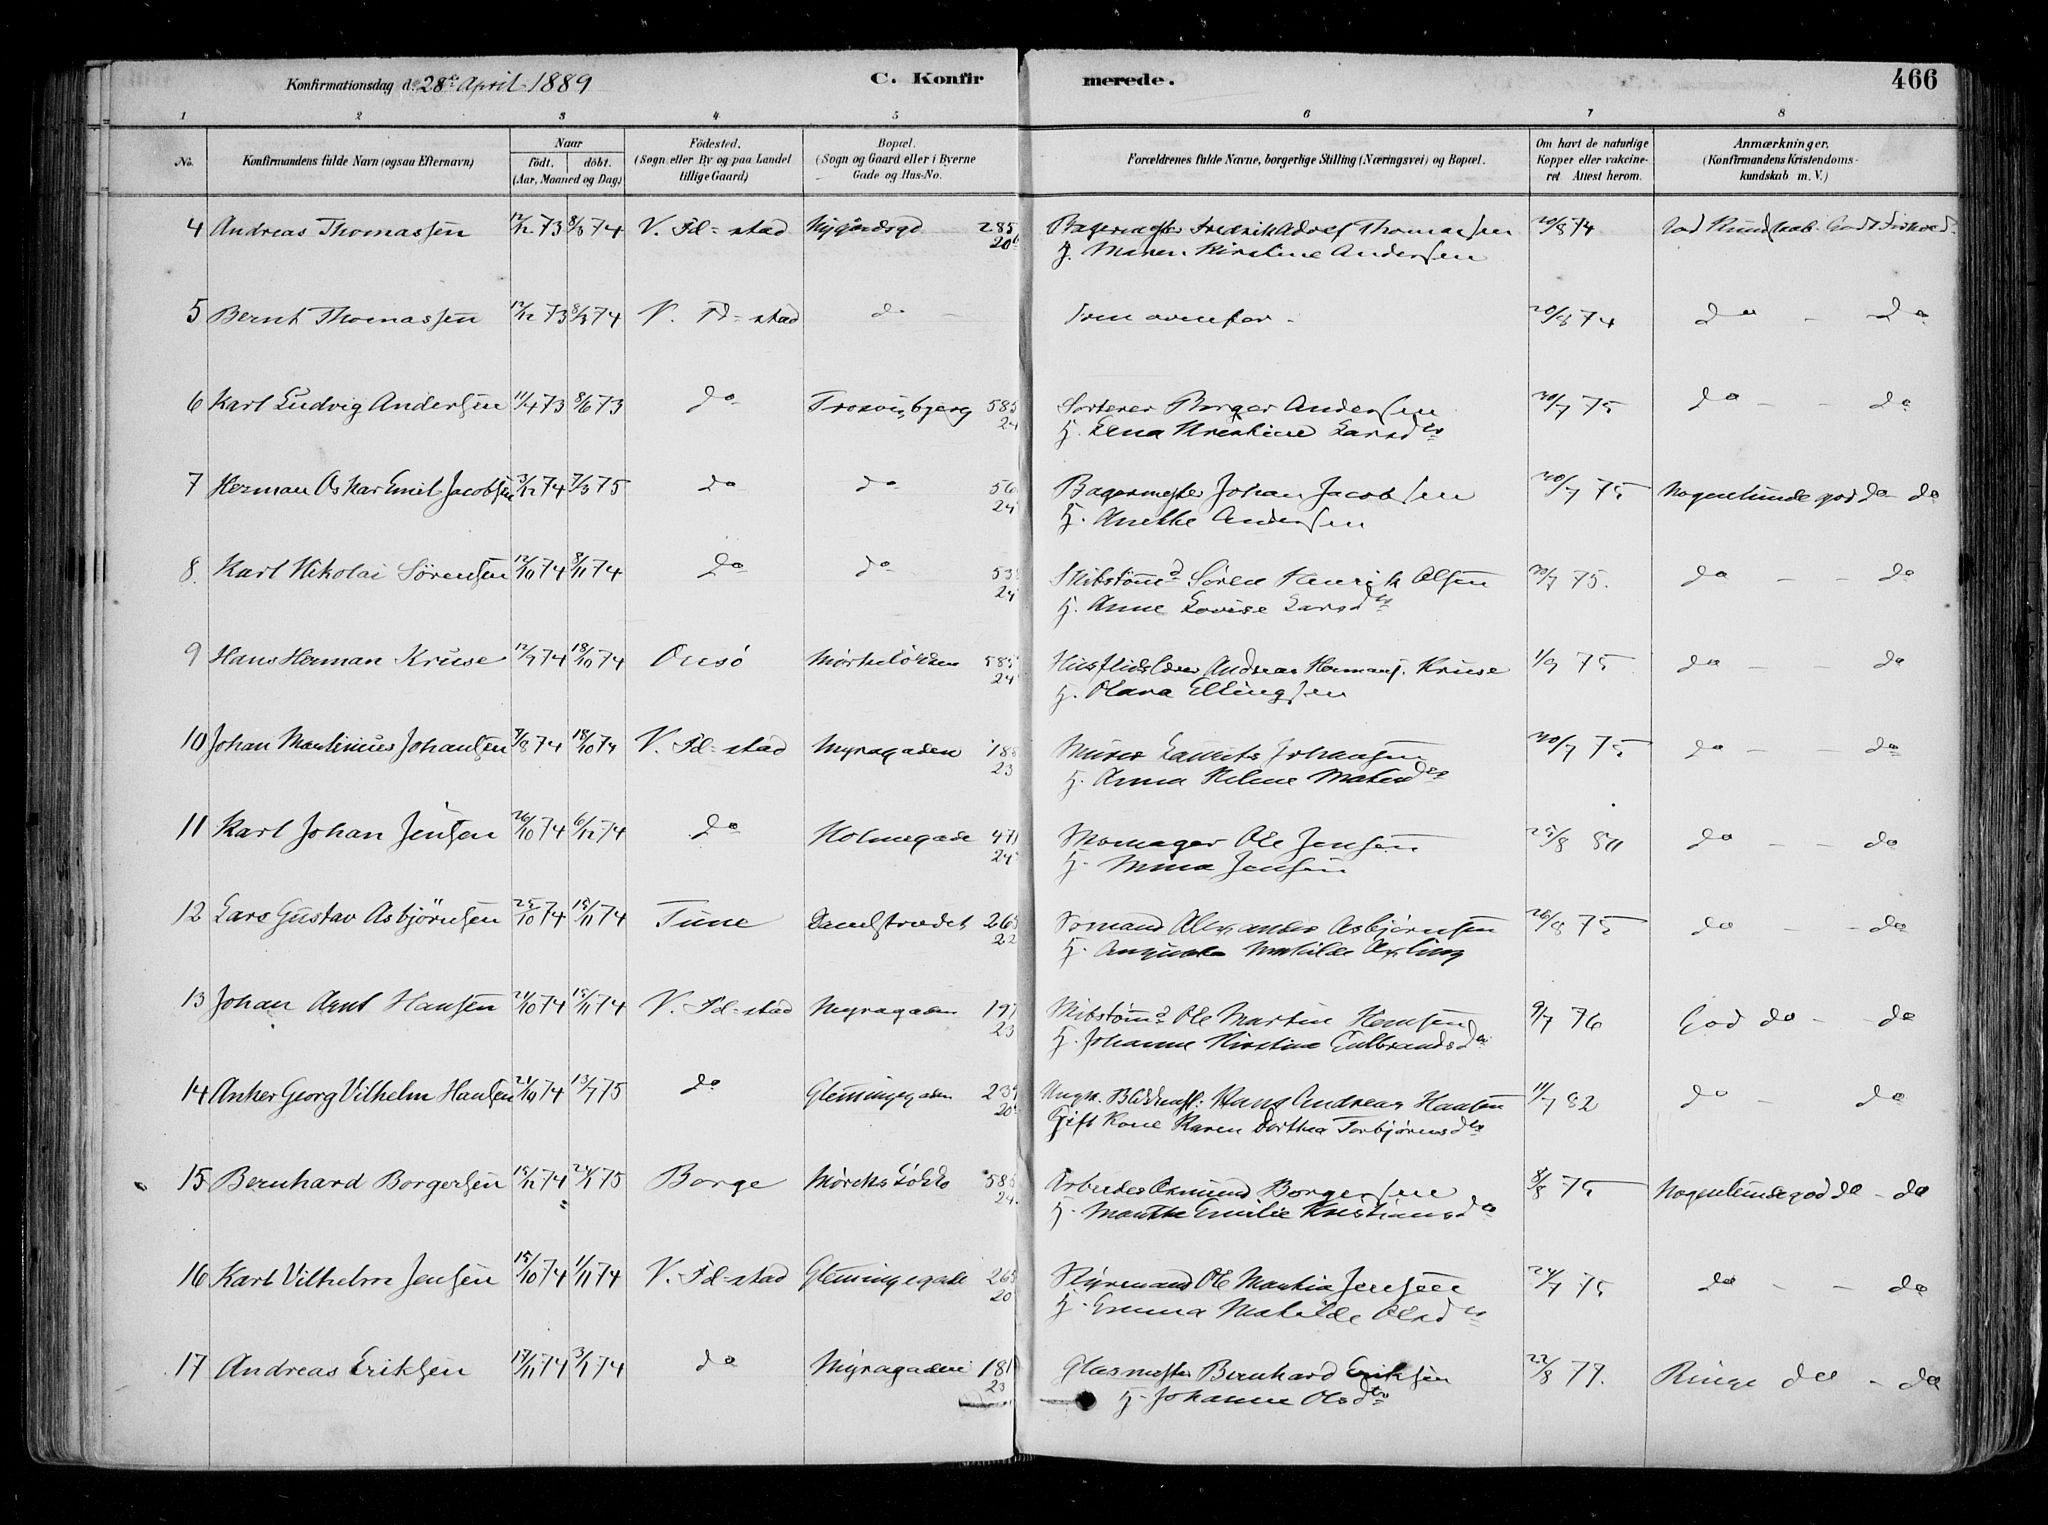 Konfirmationsdag d. 28de April 1889 C. Konfirmerede. 466
1 2 3 4 5 6 7 8
No. Konfirmandens fulde Navn (ogsaa Efternavn) Naar födt. döbt. (Aar, Maaned og Dag) Födested. (Sogn eller By og paa Landet tillige Gaard) Bopæl. (Sogn og Gaard eller i Byerne Gade og Hus-No. Forældrenes fulde Navne, borgerlige Stilling (Næringsvei) og Bopæl. Om havt de naturlige Kopper eller vakcineret. Attest herom. Anmærkninger. (Konfirmandens Kristendomskundskab m. V.)
4 Andreas Thomassen 12/12 73 8/3 74 V. Fd-stad 285 Bagermester Fredrik Thomassen 20/8 74 God Kundskab. Godt
20 H. Maren Kirstine Andersen
5 Bernt Thomassen 12/12 73 8/3 74 V. Fd-stad do Som ovenfor - 20/8 74 do - do
6 Karl Ludvig Andersen 11/4 73 8/6 73 do Trosvigbjerg 585 Sorterer Borger Andersen 20/7 75 do - - do
24 H. Lena Kristine Larsdtr
7 Herman Oskar Emil Jacobsen 3/12 74 7/3 75 do do 56 Bagermester Johan Jacobsen 20/7 75 Nogenlunde god do - do
24 H. Anethe Andersen
8. Karl Nikolai Sörensen 12/10 74 8/11 74 do do 53 Skibstømmd Søren Henrik Olsen 20/7 75. do - - do
24 H. Anne Lovise Larsdtr
9 Hans Herman Kruse 12/9 74 18/10 74 Onsö 585 Andreas Hermans. Kruse 1/9 75 do - - do
24 H. Olava Ellingsen
10 Johan Martinius Johansen 7/8 74 18/10 74 V. Fd-stad Myragaden 188 Murer Laurits Johansen 20/7 75 do - - do
23 H. Anna Helene
11 Karl Johan Jensen 26/10 74 6/12 74 do Holmegade 471 Skomager Ole Jensen 25/8 80 do - - do
24 H. Mina Jensen
12 Lars Gustav Asbjörnsen 25/10 74 15/11 74 Tune 265 Sømand Alexander Asbjørnsen 26/8 75 do - - do
22 H. Matilde
13 Johan Arnt Hansen 21/10 74 15/11 74 V. Fd-stad Myragaden 197 Skibstømmd Ole Martin Hansen 9/7 76 God do - - do
23 H. Johanne Kirstine Gulbrandsdtr
14 Anker Georg Vilhelm Hansen 21/10 74 13/7 75 do Glemmingegaden 239 Ungk. Hans Andreas Hansen 11/7 82 do - do
20 Gift Kone Karen Dorthea Torbjørnsdtr
15 Bernhard Borgersen 15/12 74 24/1 75 Borge 585 Arbeider Borgersen 8/8 75 Nogenlunde god do - do
24. H. Marthe Emilie Kristiansdtr
16 Karl Vilhelm Jensen 15/10 74 1/11 74 V. Fd-stad Glemmingegade 265 Styrmand Ole Martin Jensen 24/7 75 do - - do
20 H. Emma Matilde Olsdtr
17 Andreas Eriksen 17/11 74 3/1 74 do Myragaden 181 Glasmester Bernhard Eriksen 22/8 79. Ringe do - do
23 H. Johanne Olsdtr